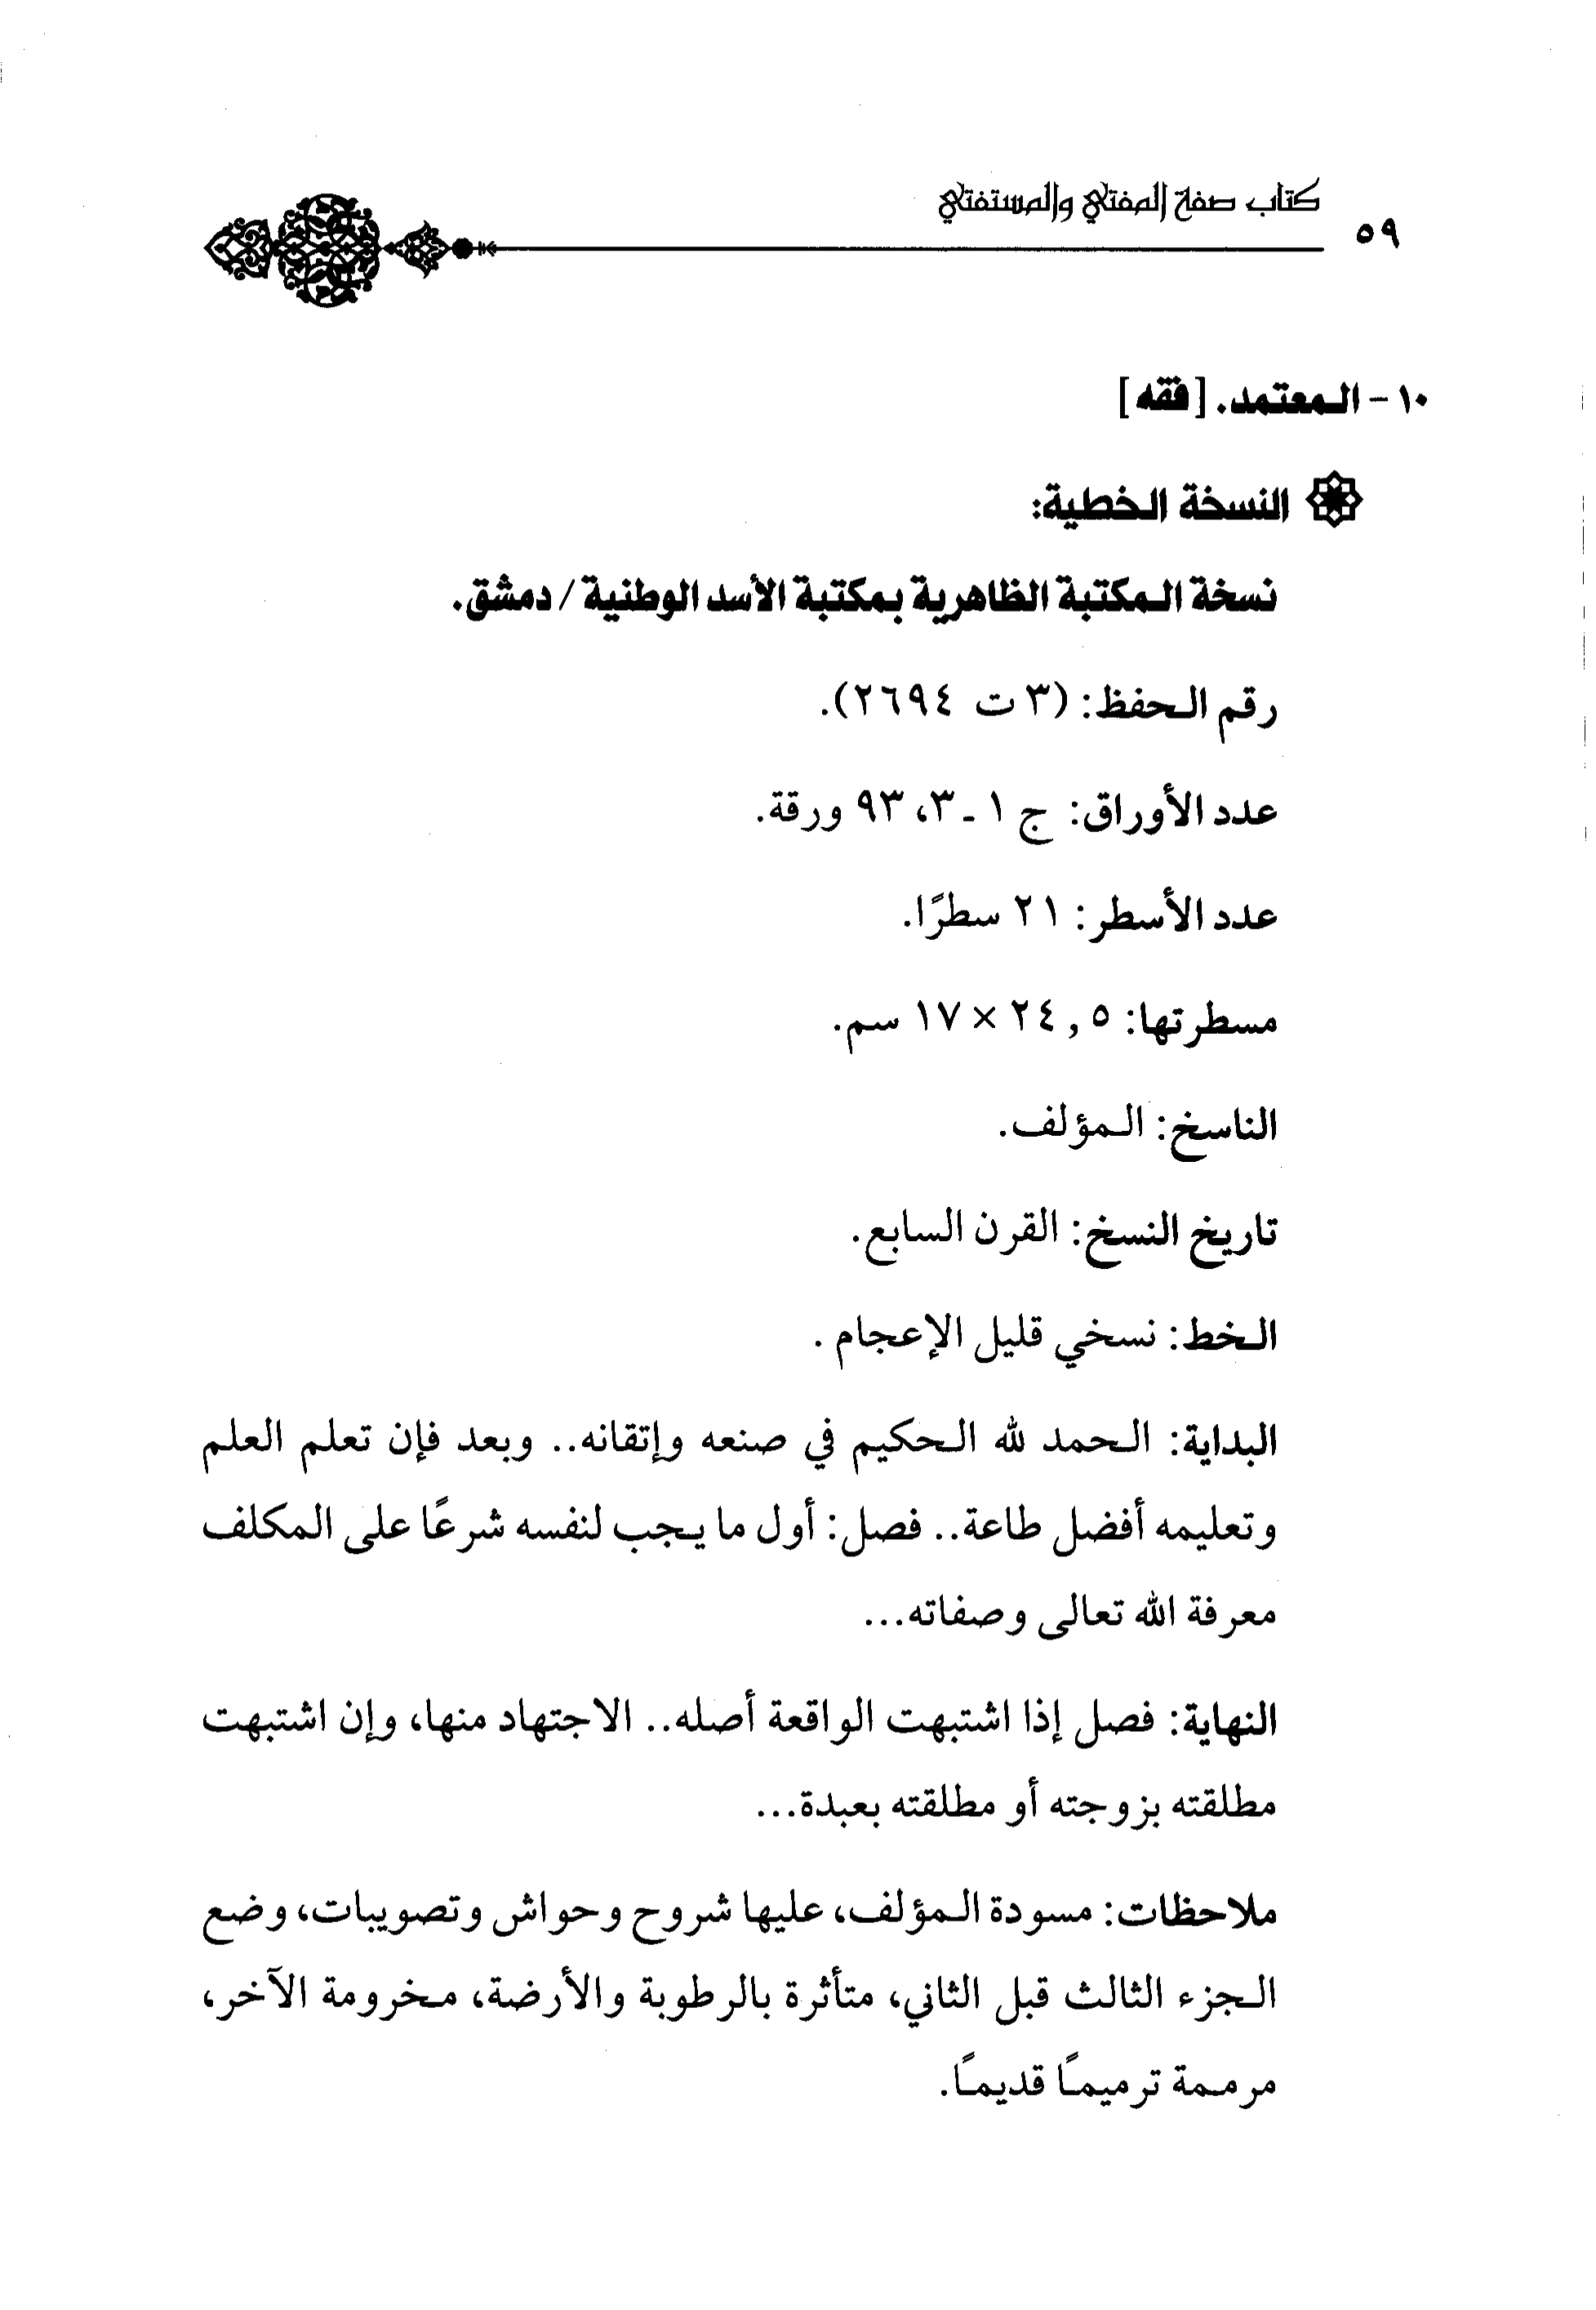 كتاب صفة المفتي والمستفتي
٥٩
١٠ - المعتمد. [فقه]
النسخة الخطية:
نسخة المكتبة الظاهرية بمكتبة الأسد الوطنية / دمشق.
رقم الحفظ: (٣ ت ٢٦٩٤).
عدد الأوراق: ج ١ - ٣، ٩٣ ورقة.
عدد الأسطر: ٢١ سطرًا.
مسطرتها: ٢٤,٥ × ١٧ سم.
الناسخ: المؤلف.
تاريخ النسخ: القرن السابع.
الخط: نسخي قليل الإعجام .
البداية: الحمد لله الحكيم في صنعه وإتقانه.. وبعد فإن تعلم العلم
وتعليمه أفضل طاعة.. فصل: أول ما يجب لنفسه شرعًا على المكلف
معرفة الله تعالى وصفاته...
النهاية: فصل إذا اشتبهت الواقعة أصله.. الاجتهاد منها، وإن اشتبهت
مطلقته بزوجته أو مطلقته بعبدة...
ملاحظات: مسودة المؤلف، عليها شروح وحواش وتصويبات، وضع
الجزء الثالث قبل الثاني، متأثرة بالرطوبة والأرضة، مخرومة الآخر،
مرممة ترميمًا قديمًا.